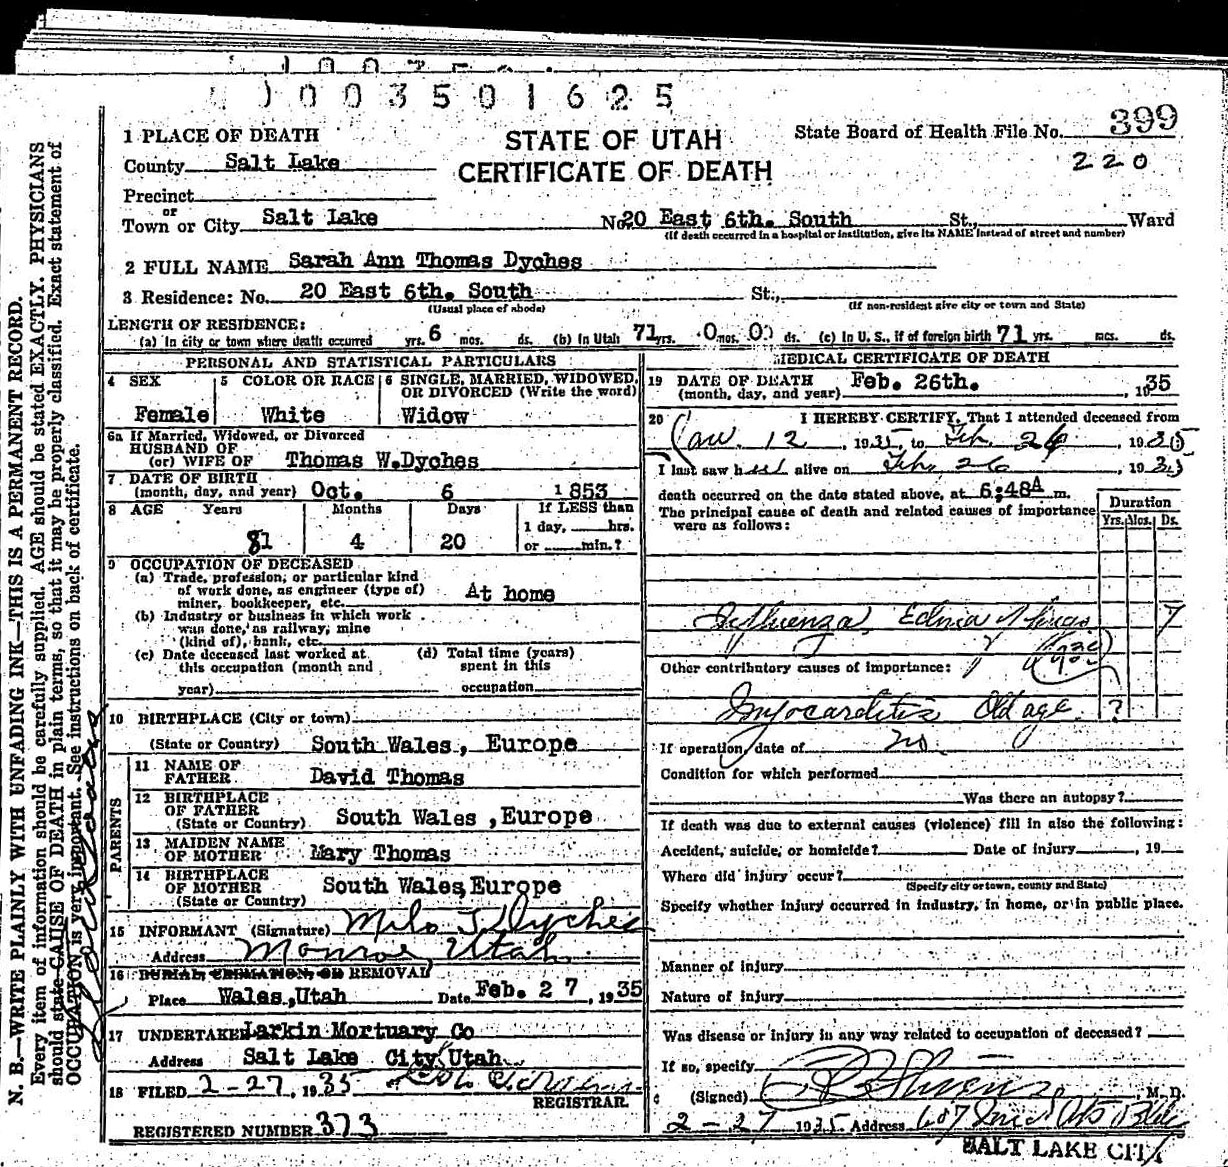 1003501625
399
1 PLACE OF DEATH
STATE OF UTAH
State Board of Health File No.
County Salt Lake
CERTIFICATE OF DEATH
220
Precinct
or
Town or City Salt Lake No. 20 East 6th. South St., Ward
(If death occurred in a hospital or institution, give its NAME instead of street and number)
2 FULL NAME Sarah Ann Thomas Dyches
3 Residence: No. 20 East 6th. South St.,
(Usual place of abode) (If non-resident give city or town and State)
LENGTH OF RESIDENCE:
(a) In city or town where death occurred yrs. 6 mos. ds. (b) In Utah 71 yrs. 0 mos. 0 ds. (c) In U. S., if of foreign birth 71 yrs. mos. ds.
PERSONAL AND STATISTICAL PARTICULARS
4 SEX
Female
5 COLOR OR RACE
White
6 SINGLE, MARRIED, WIDOWED,
OR DIVORCED (Write the word)
Widow
6a If Married, Widowed, or Divorced
HUSBAND OF
(or) WIFE OF Thomas W.Dyches
7 DATE OF BIRTH
(month, day, and year) Oct. 6 1853
8 AGE Years Months Days If LESS than
1 day, hrs.
81 4 20 or min.?
9 OCCUPATION OF DECEASED
(a) Trade, profession, or particular kind
of work done, as engineer (type of)
miner, bookkeeper, etc. At home
(b) Industry or business in which work
was done, as railway, mine
(kind of), bank, etc.
(c) Date deceased last worked at (d) Total time (years)
this occupation (month and spent in this
year) occupation
10 BIRTHPLACE (City or town)
(State or Country) South Wales, Europe
PARENTS
11 NAME OF
FATHER David Thomas
12 BIRTHPLACE
OF FATHER
(State or Country) South Wales ,Europe
13 MAIDEN NAME
OF MOTHER Mary Thomas
14 BIRTHPLACE
OF MOTHER South Wales,Europe
(State or Country)
15 INFORMANT (Signature) Milo T Dyches
Address Monroe, Utah
16 BURIAL, CREMATION, OR REMOVAL
Place Wales,Utah Date Feb. 27, 1935
17 UNDERTAKER Larkin Mortuary Co
Address Salt Lake City,Utah.
18 FILED 2-27, 1935
REGISTRAR.
REGISTERED NUMBER 373
MEDICAL CERTIFICATE OF DEATH
19 DATE OF DEATH Feb. 26th. 1935
(month, day, and year)
20 I HEREBY CERTIFY, That I attended deceased from
Jan. 12, 1935, to Feb. 26, 1935
I last saw her alive on Feb 26, 1935
death occurred on the date stated above, at 6:48A m.
The principal cause of death and related causes of importance
were as follows:
Duration
Yrs. Mos. Ds.
Influenza, Edema Lungs 7
Other contributory causes of importance:
Myocarditis Old age ?
If operation, date of no.
Condition for which performed
Was there an autopsy?
If death was due to external causes (violence) fill in also the following:
Accident, suicide, or homicide? Date of injury , 19
Where did injury occur?
(Specify city or town, county and State)
Specify whether injury occurred in industry, in home, or in public place.
Manner of injury
Nature of injury
Was disease or injury in any way related to occupation of deceased?
If so, specify
(Signed) , M. D.
2-27 1935 Address 607
SALT LAKE CITY
N. B.—WRITE PLAINLY WITH UNFADING INK—THIS IS A PERMANENT RECORD.
Every item of information should be carefully supplied. AGE should be stated EXACTLY. PHYSICIANS
should state CAUSE OF DEATH in plain terms, so that it may be properly classified. Exact statement of
OCCUPATION is very important. See instructions on back of certificate.